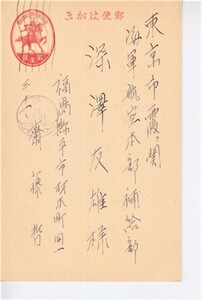 郵便はがき
東京市霞ヶ関
海軍航空本部補給部
深澤友雄様
福島縣平市材木町四一
齋藤